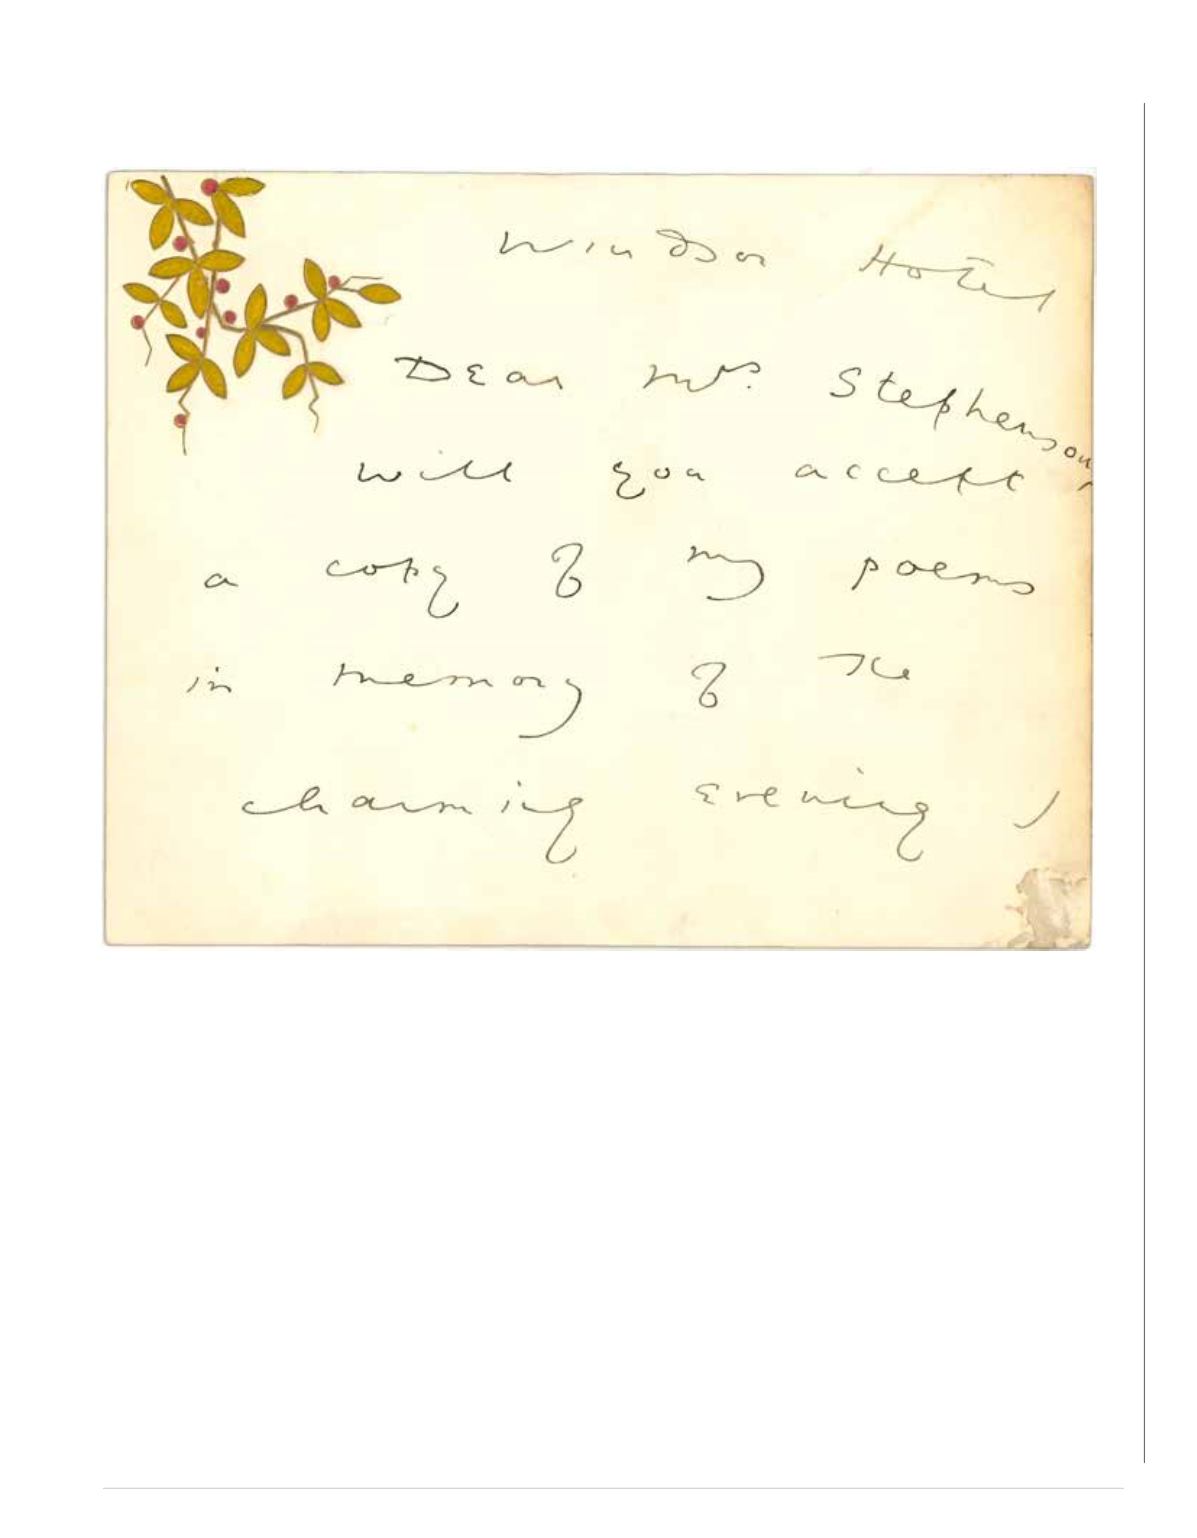 Windsor Hotel
Dear Mrs. Stephenson,
will you accept
a copy of my poems
in memory of the
charming evening I